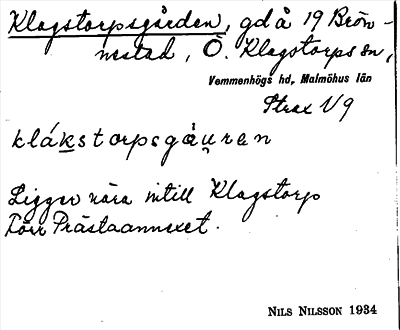 Klagstorpsgården, gd å 19 Brön-
nestad, Ö. Klagstorps sn,
Vemmenhögs hd, Malmöhus län
Strax V 9
klákstorpsgåu̯ren
Ligger nära intill Klagstorp
Förr Prästaannexet.
NILS NILSSON 1934